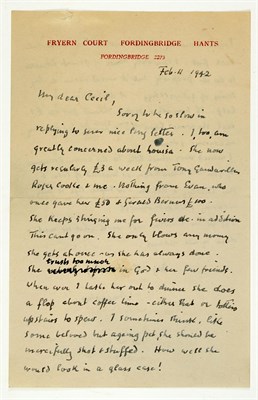 FRYERN COURT FORDINGBRIDGE HANTS
FORDINGBRIDGE 2273
Feb. 11 1942
My dear Cecil,
Sorry to be so slow in
replying to your nice long letter. I, too, am
greatly concerned about Louisa. She now
gets regularly £3 a week from Tony Gandarillas
Roger Cooke & me. Nothing from Evan, who
once gave her £50 & Gerald Berners £100.
She keeps stringing me for fivers in addition
This can't go on. She only blows any money
She gets at once – as she has always done.
trusts too much
She in God & her few friends.
When ever I take her out to dinner she does
a flop about coffee time – either that or
upstairs to spew. I sometimes think, like
some beloved but ageing pet, she should be
mercifully shot & stuffed. How well she
would look in a glass case!